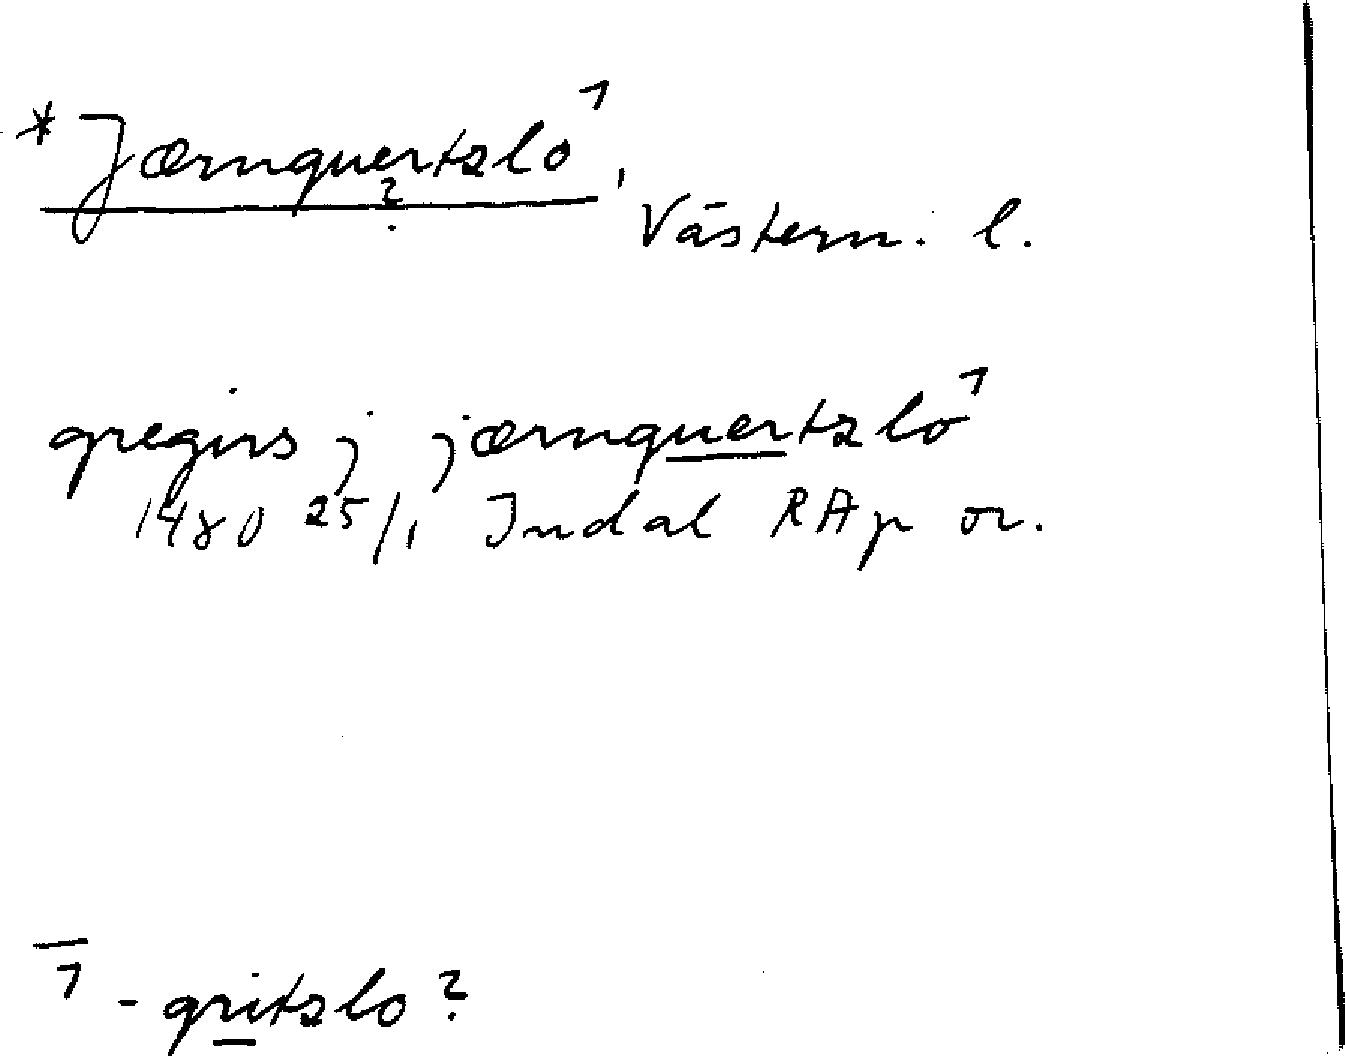 *Jærnquertzlo¹,
?
Västern. l.
gregirs j jærnquertzlo¹
1480 25/1 Indal RAp or.
1 - gritzlo?